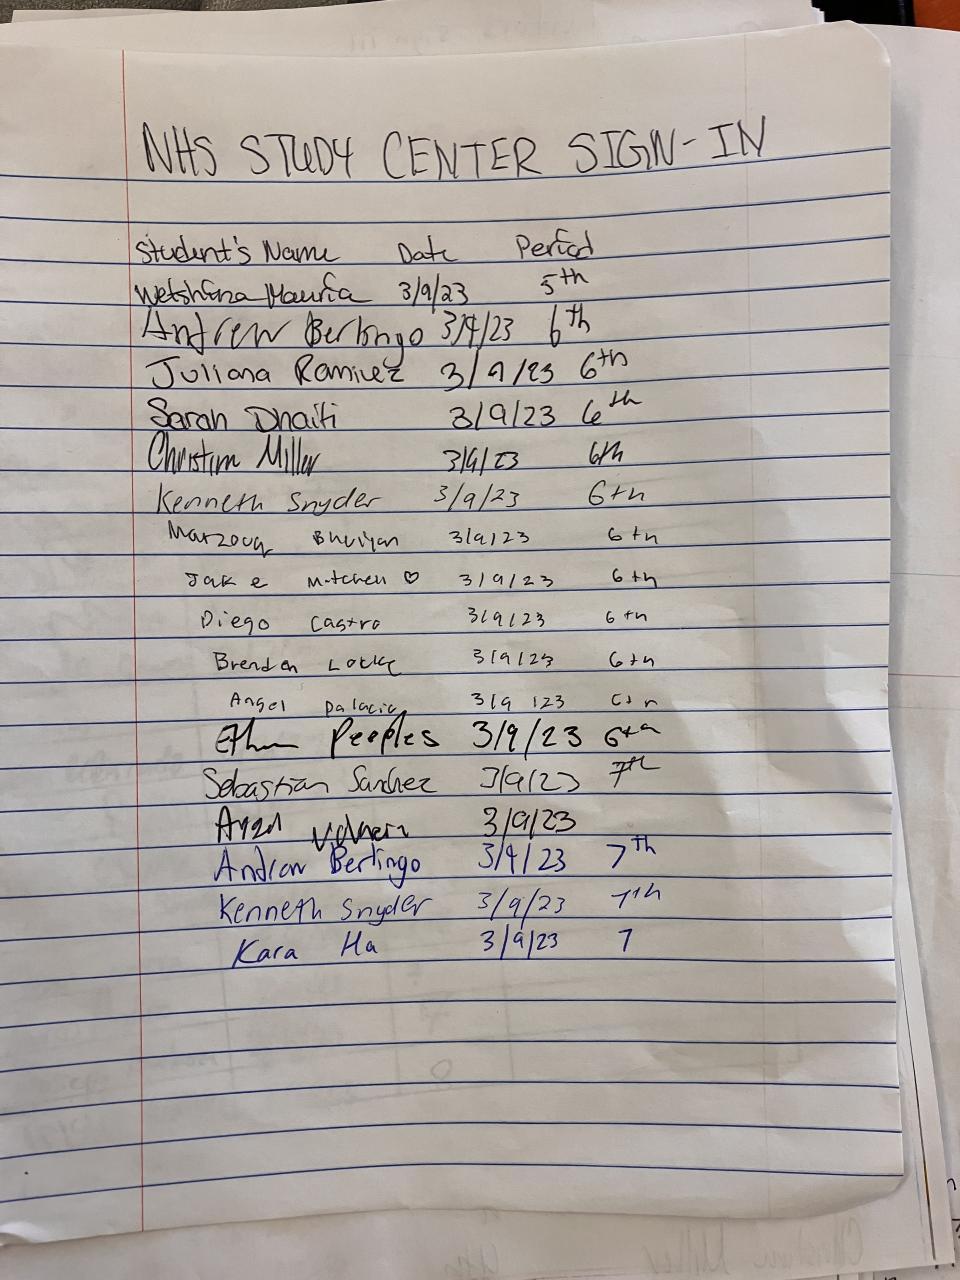 NHS STUDY CENTER SIGN-IN
Student's Name Date Period
3/9/23 5th
Andrew Berlingo 3/9/23 6th
Juliana Ramirez 3/9/23 6th
Sarah Dhaiti 3/9/23 6th
Christian Miller 3/9/23 6th
Kenneth Snyder 3/9/23 6th
Marzouq Bhuiyan 3/9/23 6th
Jake Mitchell ♡ 3/9/23 6th
Diego Castro 3/9/23 6th
Brendan Locke 3/9/23 6th
Angel Palacio 3/9/23 6th
Ethan Peoples 3/9/23 6th
Sebastian Sanchez 3/9/23 7th
3/9/23
Andrew Berlingo 3/9/23 7th
Kenneth Snyder 3/9/23 7th
Kara Ha 3/9/23 7